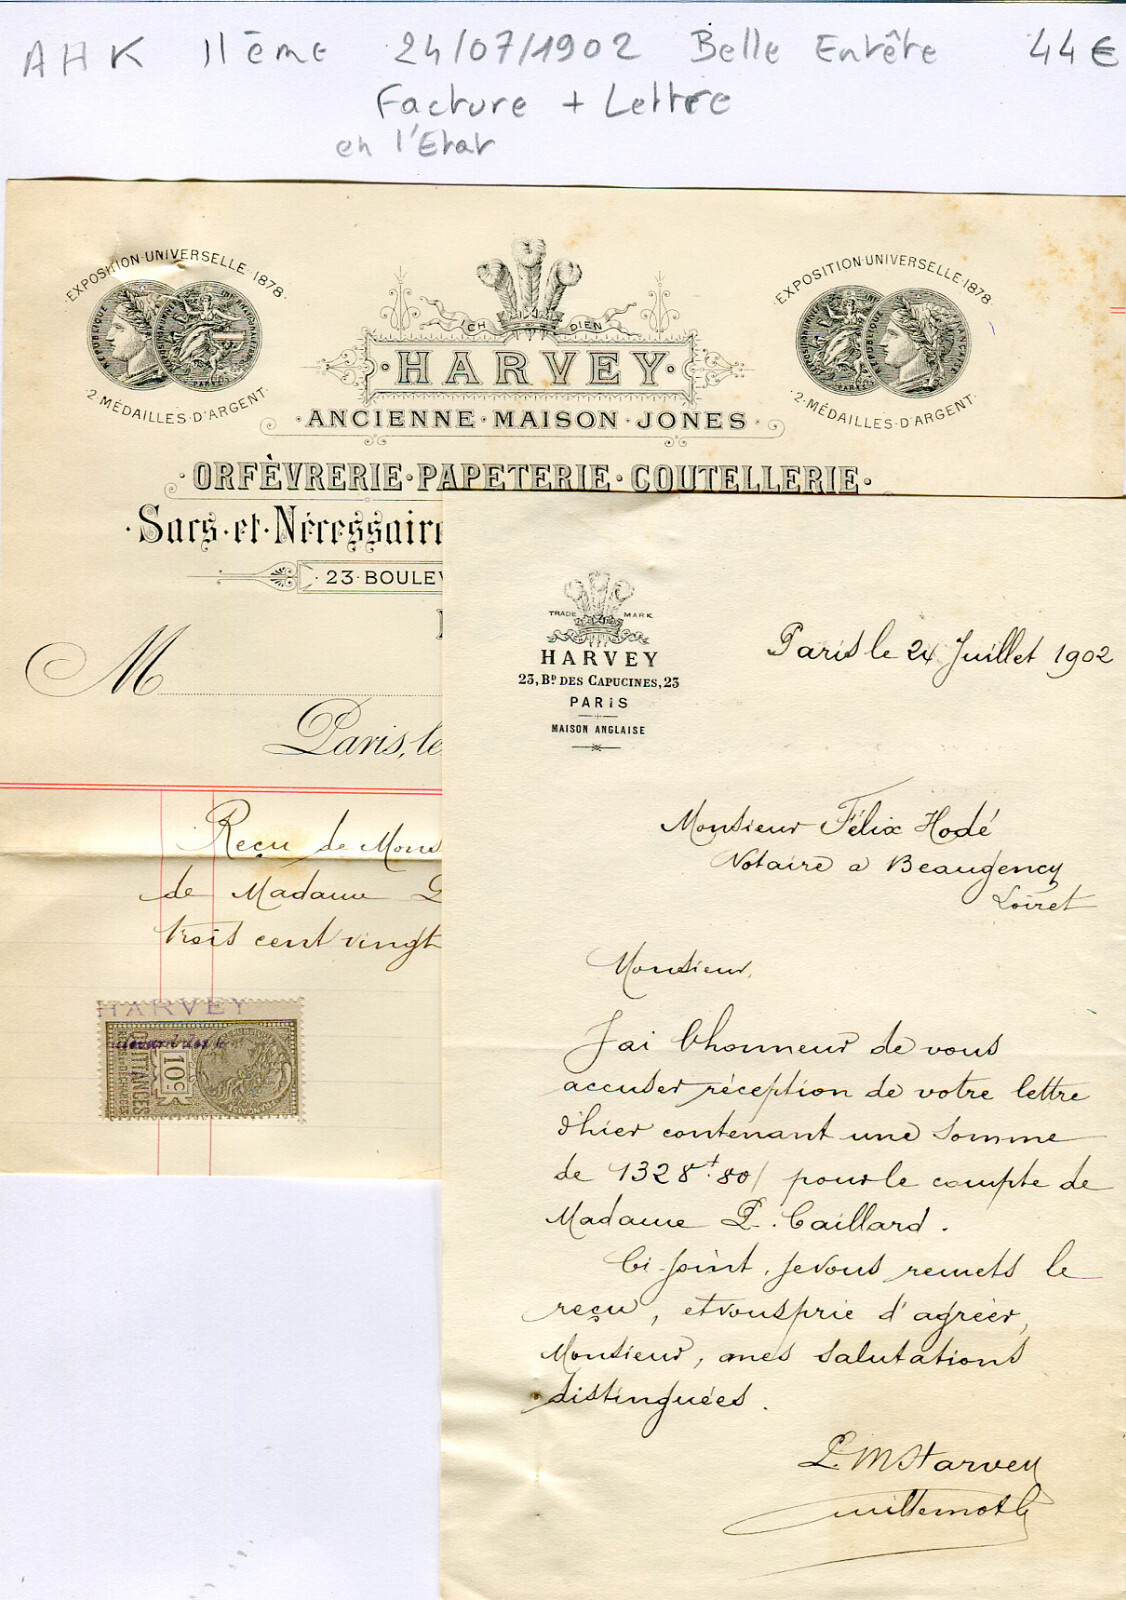 AHK 11ème 24/07/1902 Belle Entête 44€
Facture + Lettre
en l'Etat
EXPOSITION·UNIVERSELLE 1878·
RÉPUBLIQUE
2 MÉDAILLES·D'ARGENT
ICH DIEN
·HARVEY·
·ANCIENNE·MAISON·JONES·
·ORFÈVRERIE·PAPETERIE·COUTELLERIE·
·Sacs·et·Nécessaire
·23·BOULEV
M
Paris, le
EXPOSITION·UNIVERSELLE 1878
RÉPUBLIQUE FRANÇAISE
·2·MÉDAILLES·D'ARGENT·
Reçu de Mons
de Madame P
trois cent vingt
HARVEY
10c
QUITTANCES
TRADE MARK
HARVEY
23, Bd DES CAPUCINES, 23
PARIS
MAISON ANGLAISE
Paris le 24 Juillet 1902
Monsieur Félix Hodé
Notaire a Beaugency
Loiret
Monsieur,
J'ai l'honneur de vous
accuser réception de votre lettre
d'hier contenant une somme
de 1328f.80/ pour le compte de
Madame P. Caillard.
Ci-joint, je vous remets le
reçu, et vous prie d'agréer,
Monsieur, mes salutations
distinguées.
P. M Harvey